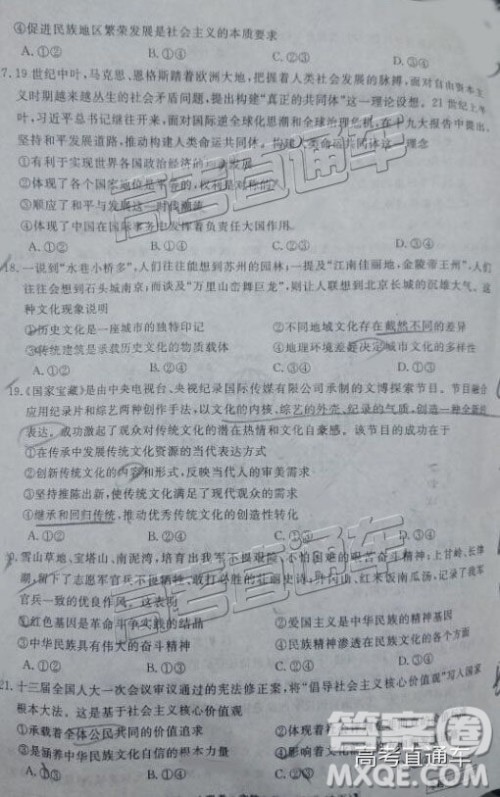 ④促进民族地区繁荣发展是社会主义的本质要求
A. ①② B. ①③ C. ②④ D. ③④
7. 19 世纪中叶,马克思、恩格斯踏着欧洲大地,把握着人类社会发展的脉搏,面对自由资本主
义时期越来越丛生的社会矛盾问题,提出构建“真正的共同体”这一理论设想。21 世纪上半
叶,习近平总书记继往开来,面对国际逆全球化思潮和全球治理现危机,在十九大报告中提出,
坚持和平发展道路,推动构建人类命运共同体。构建人类命运共同体这一理念
①有利于实现世界各国政治经济的发展
②体现了各个国家定位是平等的,权利是对称的
③顺应了和平与发展这一时代潮流
④体现了中国在国际事务中发挥着负责任大国作用
A. ①② B. ①④ C. ②③ D. ③④
18. 一说到“水巷小桥多”,人们往往能想到苏州的园林;一提及“江南佳丽地,金陵帝王州”,人们往
往会想到石头城南京;而谈及“万里山峦舞巨龙”,则让人联想到北京长城的沉雄大气。这
种文化现象说明
①历史文化是一座城市的独特印记 ②不同地域文化存在截然不同的差异
③传统建筑是承载历史文化的物质载体 ④地理环境差异决定城市文化的多样性
A. ①② B. ①③ C. ②④ D. ③④
19. 《国家宝藏》是由中央电视台、央视纪录国际传媒有限公司承制的文博探索节目。节目融合
应用纪录片和综艺两种创作手法,以文化的内核、综艺的外壳、纪录的气质,创造一种全新的
表达。成功激起了观众对传统文化的潜在热情和文化自豪感。该节目的成功在于
①在传承中发展传统文化资源的当代表达方式
②创新传统文化的内容和形式,反映当代人的审美需求
③坚持推陈出新,使传统文化满足了现代观众的需求
④继承和回归传统,推动优秀传统文化的创造性转化
A. ①② B. ①③ C. ②④ D. ③④
0. 雪山草地、宝塔山、南泥湾,培育出我军不畏艰险、不怕困难的艰苦奋斗精神;上甘岭、长津
湖,留下了志愿军官兵不怕牺牲、敢打必胜的壮丽史诗;野菜山、红米饭南瓜汤,记录了我军
官兵一致的优良作风。这表明
①红色基因是革命斗争实践的结晶 ②爱国主义是中华民族的精神基因
③中华民族具有伟大的奋斗精神 ④民族精神渗透在民族文化的各个方面
A. ①② B. ①③ C. ②④ D. ③④
21. 十三届全国人大一次会议审议通过的宪法修正案,将“倡导社会主义核心价值观”写入国家
根本大法。这是基于社会主义核心价值观
①承载着全体公民共同的价值追求
③是涵养中华民族文化自信的根本力量 ④影响着文化
A. ①② B. ①③
高考直通车
高考直通车
答案圈
高考直通车
MXQE.COM